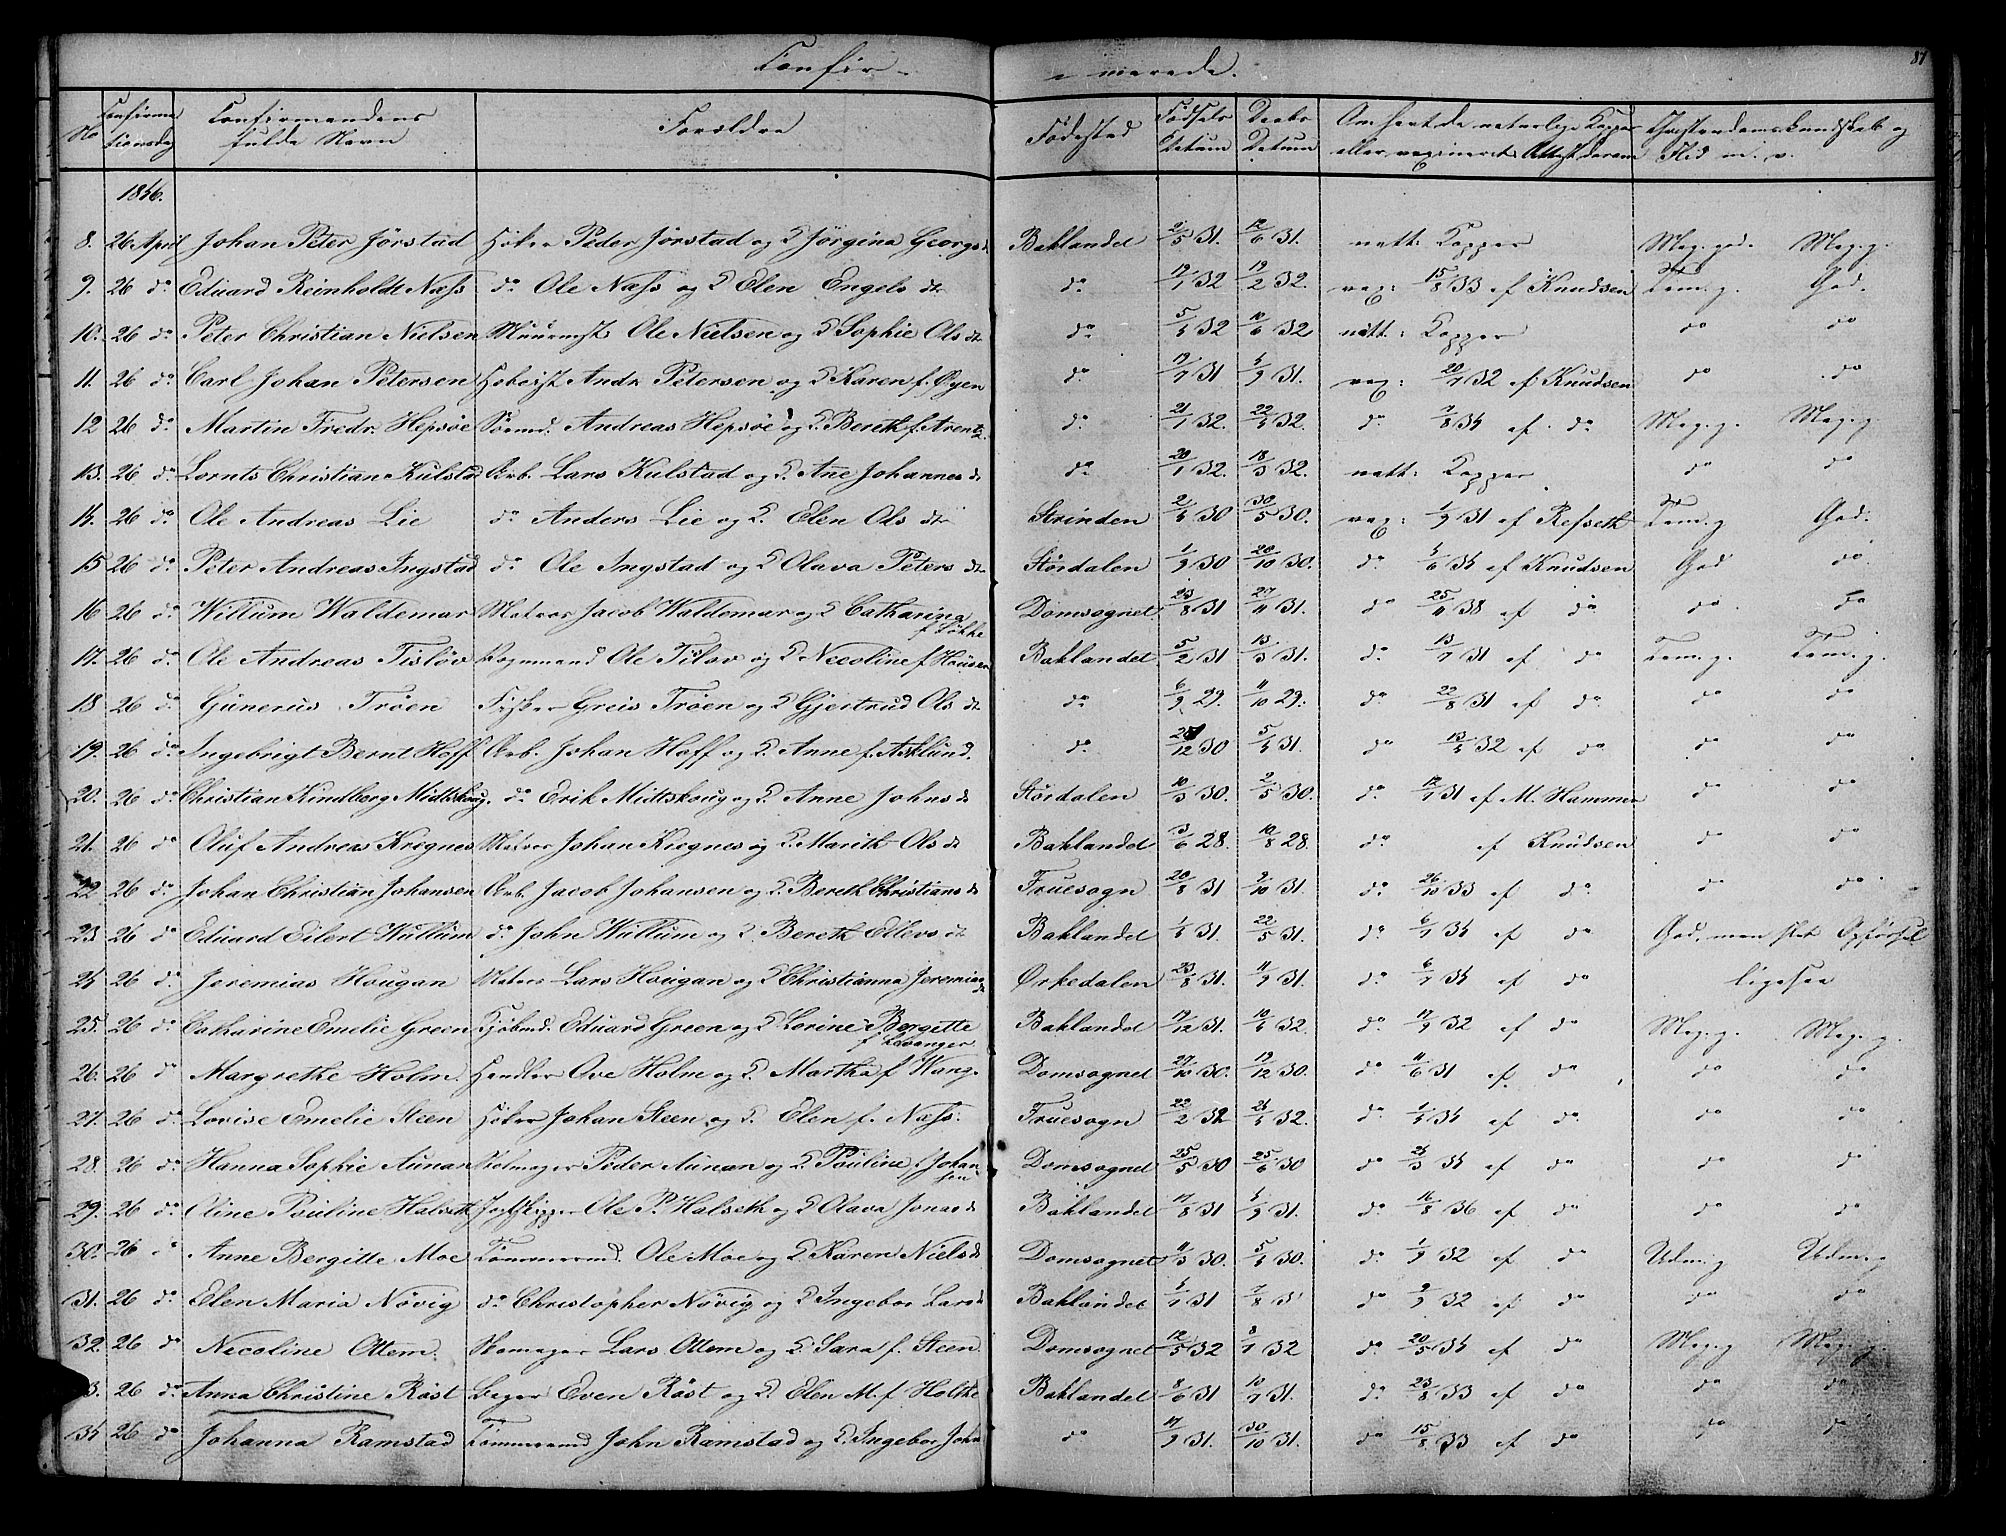 Confir- merede. 87
No Confirmationsdag Confirmandens fulde Navn Forældre Fødested Fødsels Datum Daabs Datum Om havt de naturlige Kopper eller vaxineret Attest derom Christendomskundskab og Flid m. v.
1846.
8. 26 April Johan Peter Jörstad Höker Peder Jörstad og Jörgina Georgsd Baklandet 2/5 31. 12/6 31. natt: Kopper Meg. god. Meg. g.
9. 26 do Eduard Reinholdt Næss do Ole Næss og Elen Engels dtr do 19/1 32 19/2 32. vax: 15/8 33 af Knudsen Tem. g. God.
10. 26 do Peter Christian Nielsen Muurmstr Ole Nielsen og Sophie Ols dtr do 5/4 32 10/6 32 natt: Kopper do do
11. 26 do Carl Johan Petersen Andr. Petersen og Karen f. Öyen do 19/7 31 4/9 31. vax: 20/7 32 af Knudsen do do
12 26 do Martin Fredr. Hepsöe Sömd. Andreas Hepsöe og Bereth f. Arentz do 21/1 32. 22/4 32. do 7/8 34 af do Meg. g. Meg. g.
13. 26 do Lornts Christian Kulstad Arb. Lars Kulstad og Ane Johannes d do 20/1 32. 18/3 32. natt: Kopper do do
14. 26 do Ole Andreas Lie do Anders Lie og Elen Ols dtr Strinden 2/4 30 30/5 30. vax: 1/9 31 af Resseth Tem. g God.
15 26 do Peter Andreas Ingstad do Ole Ingstad og Olava Peters dtr Stördalen 1/9 30 20/10 30. do 4/6 34 af Knudsen God do
16 26 do Willum Waldemar Matros Jacob Waldemar og Catharina f. Lökke Domsognet 23/8 31 27/11 31. do 25/11 38 af do do do
17. 26 do Ole Andreas Tislöv Vognmand Ole Tislov og Nicoline f. Hansen Baklandet 5/2 31 13/3 31. do 13/7 31 af do Tem. g. Tem. g.
18 26 do Gunerus Tröen Fisker Greis Tröen og Gjertrud Ols dtr do 6/9 29. 11/10 29. do 22/8 31 af do do do
19. 26 do Ingebrigt Bernt Hoff Arb. Johan Hoff og Anne f. Asklund. do 12 30 5/4 31. do 13/4 32 af do do do
20. 26 do Christian Kindberg Midtskoug. do Erik Midtskoug og Anne Johns d Stördalen 10/3 30. 2/5 30. do 12/7 31 af M. Hammer do do
21. 26 do Oluf Andreas Krognes Matros Johan Kiegnes og Marith Ols dt Baklandet 3/6 28. 10/8 28. do af Knudsen do do
22 26 do Johan Christian Johansen Arb. Jacob Johansen og Bereth Christians d Fruesogn 20/8 31 2/10 31. do 26/10 33 af do do do
23. 26 do Eduard Eilert Wullum do John Wullum og Bereth Ellevs dt Baklandet 1/4 31. 22/5 31. do 6/7 34 af do God, men slet Opförsel
24 26 do Jeremias Hougan Matros Lars Hougan og Christianna Jeremias dt Örkedalen 23/8 31. 11/9 31. do 6/7 34 af do ligesaa
25. 26 do Catharine Emelie Green Kjöbmd. Eduard Green og Lorine Bergitte f. Levanger Baklandet 19/12 31. 10/4 32. do 17/9 32 af do Meg. g. Meg. g.
26. 26 do Margrethe Holm. Handler Ove Holm og Martha f. Wang. Domsognet 27/10 30. 19/12 30. do 11/6 31 af do do do
27. 26 do Lovise Emelie Steen Höker Johan Steen og Elen f. Næss. Fruesogn 22/2 32 24/4 32. do 1/4 34 af do do do
28. 26 do Hanna Sophie Aunan Peder Aunan og Pauline f. Johansen Domsognet 25/5 30 25/6 30 do 24/3 34 af do do do
29. 26 do Oline Pauline Halseth Ole P. Halseth og Olava Jonas d Baklandet 17/8 31 4/9 31. do 16/8 36 af do do do
30. 26 do Anne Bergitte Moe Tömmermd. Ole Moe og Karen Niels d Domsognet 11/3 30. 5/4 30. do 1/9 32 af do Udm. g Udm. g
31. 26 do Elen Maria Növig do Christopher Növig og Ingebor Lars d Baklandet 4/7 31 7/8 31 do 2/9 32 af do do do
32. 26 do Nicoline Ottem. Skomager Lars Ottem og Sara f. Steen Domsognet 12/5 32 8/7 32 do 20/5 34 af do Meg. g Meg. g.
33. 26 do Anna Christine Röst Bager Even Röst og Elen M. f. Holtke Baklandet 8/6 31 10/7 31. do 23/8 33 af do do do
34 26 do Johanna Ramstad Tömmermd John Ramstad og Ingebor John do 17/9 31. 30/10 31. do 15/8 33 af do do do